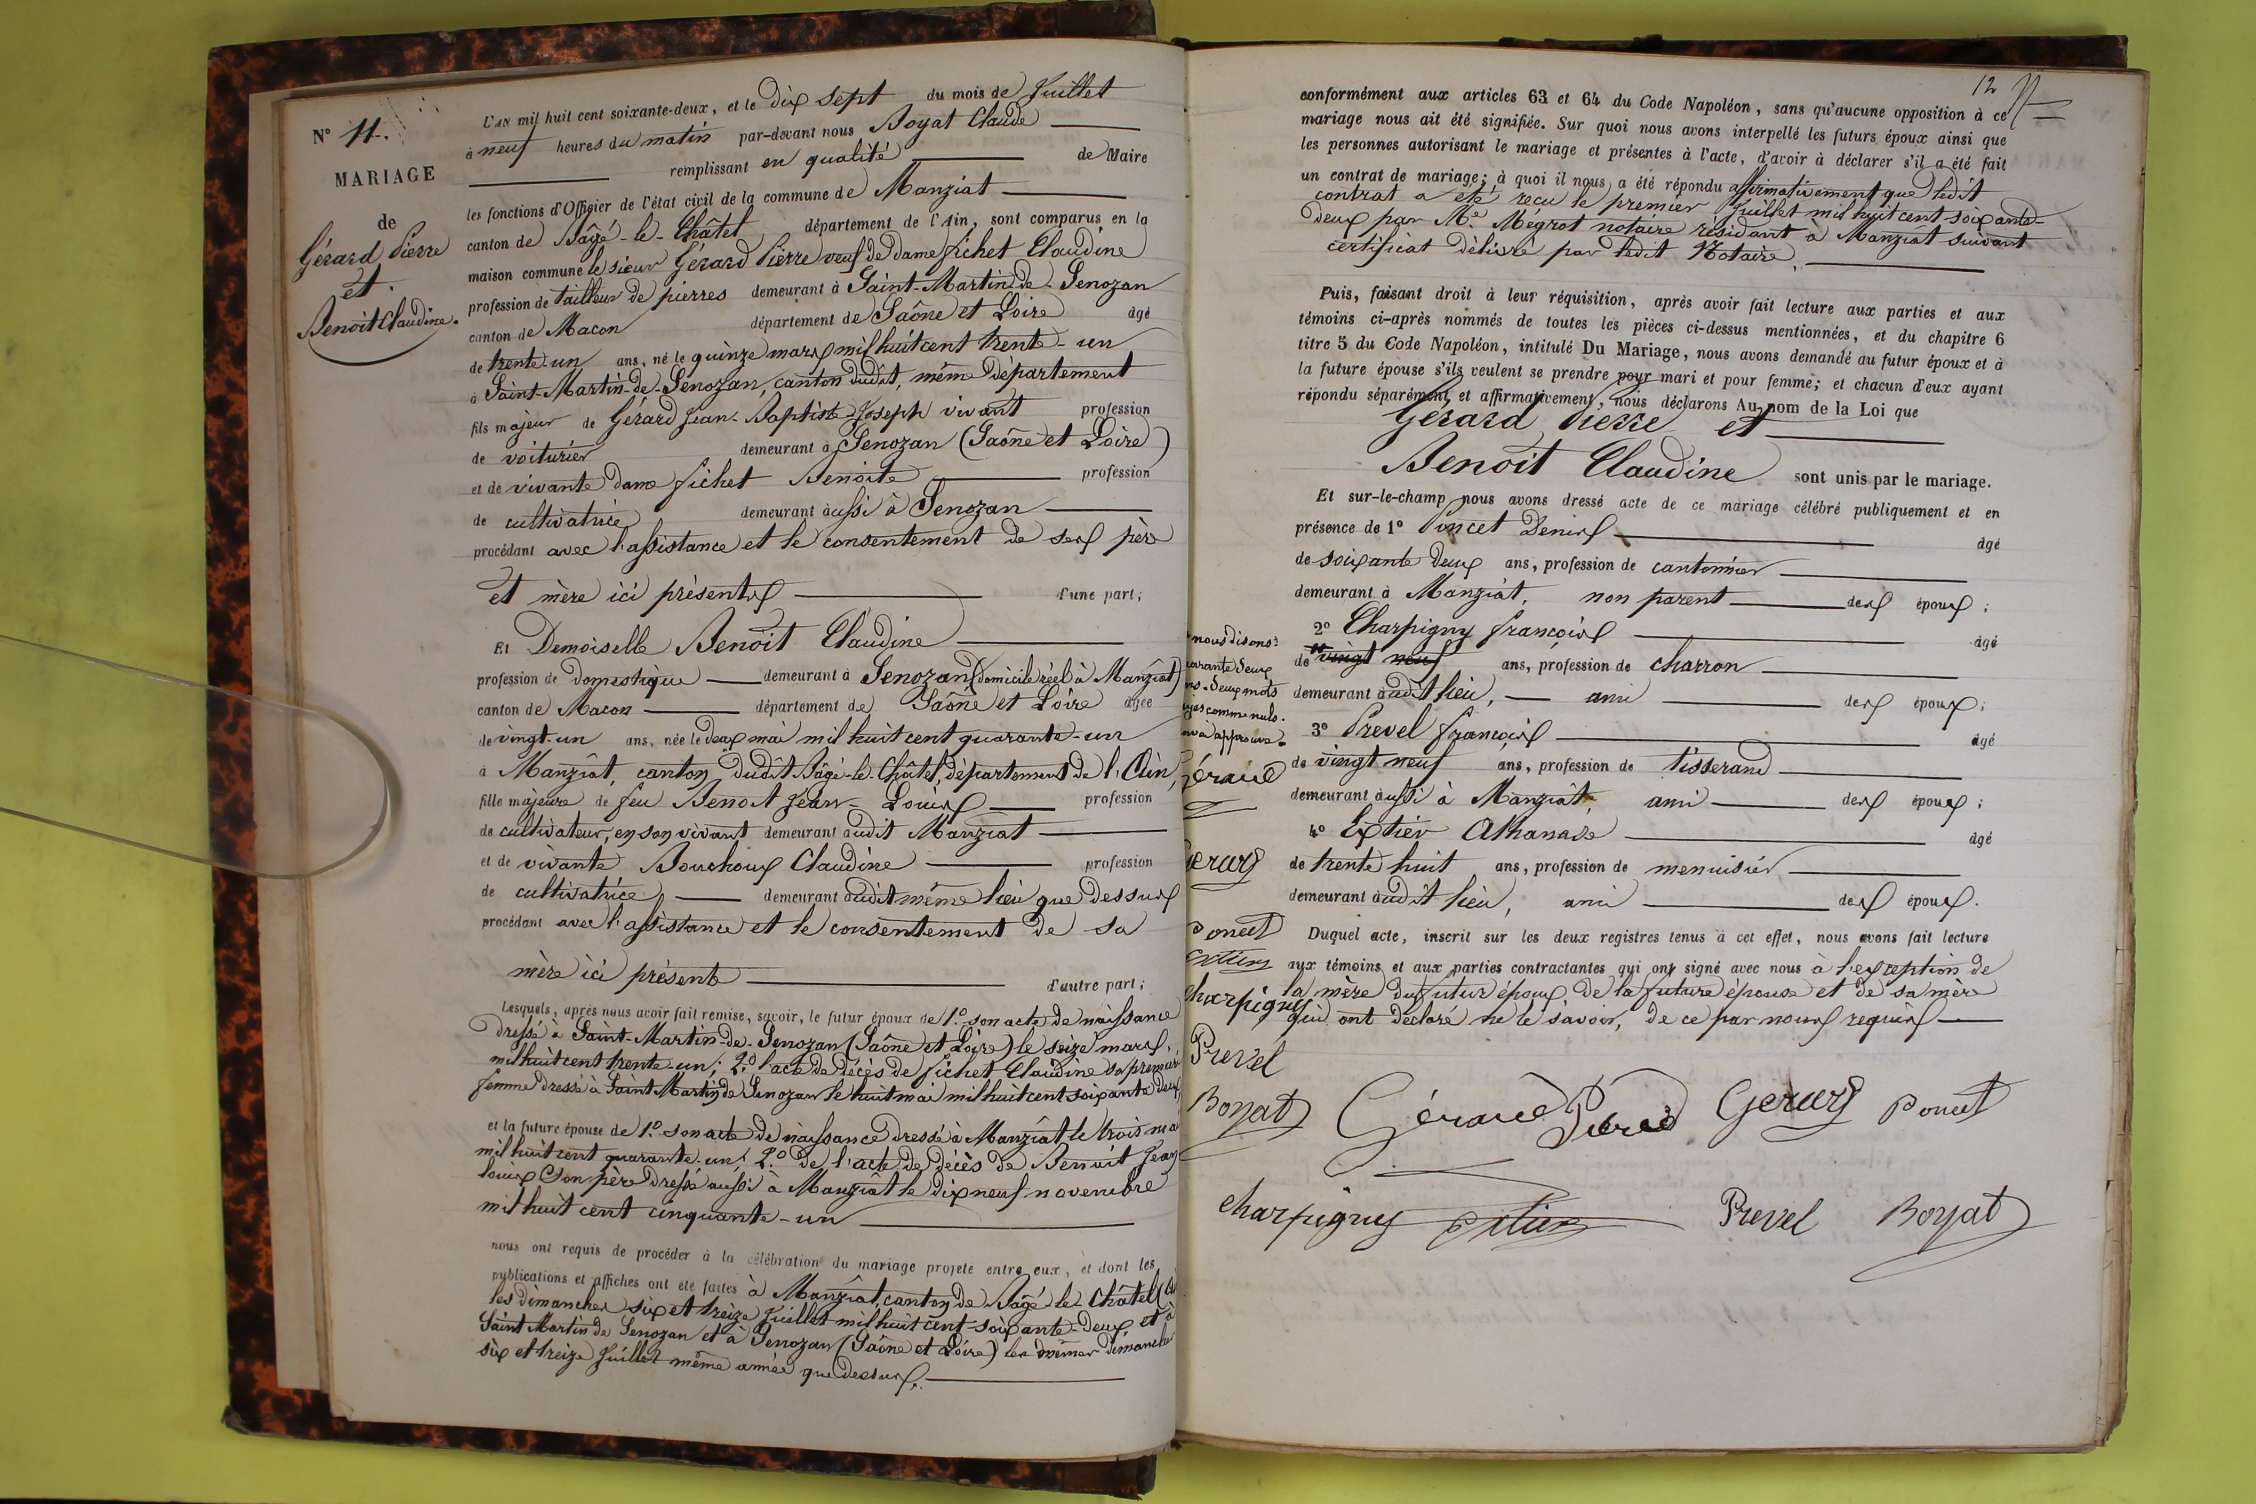 N° 11.
MARIAGE
de
Gérard Pierre
et
Benoît Claudine.
L'AN mil huit cent soixante-deux, et le dix sept du mois de Juillet
à neuf heures du matin par-devant nous Boyat Claude
remplissant en qualité de Maire
les fonctions d'Officier de l'état civil de la commune de Manziat
canton de Bâgé-le-Châtel département de l'Ain, sont comparus en la
maison commune le sieur Gérard Pierre veuf de dame fichet Claudine
profession de tailleur de pierres demeurant à Saint-Martin-de-Senozan
canton de Macon département de Saône et Loire âgé
de trente-un ans, né le quinze mars mil huit cent trente-un
à Saint-Martin-de-Senozan, canton dudit, même département
fils majeur de Gérard Jean-Baptiste Joseph vivant profession
de voiturier demeurant à Senozan (Saône et Loire)
et de vivante dame fichet Benoite profession
de cultivatrice demeurant aussi à Senozan
procédant avec l'assistance et le consentement de ses père
et mère ici présents d'une part;
Et Demoiselle Benoît Claudine
profession de domestique demeurant à Senozan (domicile réel à Manziat)
canton de Macon département de Saône et Loire agée
de vingt-un ans, née le deux mai mil huit cent quarante-un
à Manziat, canton dudit Bâgé-le-Châtel, département de l'Ain,
fille majeure de feu Benoit Jean-Louis profession
de cultivateur, en son vivant demeurant audit Manziat
et de vivante Bouchoux Claudine profession
de cultivatrice demeurant audit même lieu que dessus
procédant avec l'assistance et le consentement de sa
mère ici présente d'autre part;
Lesquels, après nous avoir fait remise, savoir, le futur époux de 1° son acte de naissance
dressé à Saint-Martin-de-Senozan (Saône et Loire) le seize mars
mil huit cent trente-un; 2° l'acte de décès de fichet Claudine sa première
femme dressé à Saint Martin de Senozan le huit mai mil huit cent soixante deux,
et la future épouse de 1° son acte de naissance dressé à Manziat le trois mai
mil huit cent quarante-un; 2° de l'acte de décès de Benoit Jean
louis son père dressé aussi à Manziat le dix neuf novembre
mil huit cent cinquante-un
nous ont requis de procéder à la célébration du mariage projeté entre eux, et dont les
publications et affiches ont été faites à Manziat, canton de Bâgé-le-Châtel
les dimanches six et treize Juillet mil huit cent soixante-deux, et à
Saint Martin de Senozan et à Senozan (Saône et Loire) les mêmes dimanches
six et treize Juillet même année que dessus.
12
conformément aux articles 63 et 64 du Code Napoléon, sans qu'aucune opposition à ce
mariage nous ait été signifiée. Sur quoi nous avons interpellé les futurs époux ainsi que
les personnes autorisant le mariage et présentes à l'acte, d'avoir à déclarer s'il a été fait
un contrat de mariage; à quoi il nous a été répondu affirmativement que ledit
contrat a été reçu le premier Juillet mil huit cent soixante-
deux par Me Mégrat notaire résidant à Manziat suivant
certificat délivré par ledit Notaire.
Puis, faisant droit à leur réquisition, après avoir fait lecture aux parties et aux
témoins ci-après nommés de toutes les pièces ci-dessus mentionnées, et du chapitre 6
titre 5 du Code Napoléon, intitulé Du Mariage, nous avons demandé au futur époux et à
la future épouse s'ils veulent se prendre pour mari et pour femme; et chacun d'eux ayant
répondu séparément et affirmativement, nous déclarons Au nom de la Loi que
Gérard Pierre et
Benoît Claudine sont unis par le mariage.
Et sur-le-champ nous avons dressé acte de ce mariage célébré publiquement et en
présence de 1° Poncet Denis âgé
de soixante deux ans, profession de cantonnier
demeurant à Manziat, non parent des époux;
2° Charpigny françois âgé
de vingt neuf ans, profession de charron
demeurant audit lieu, ami des époux;
3° Prevel françois âgé
de vingt neuf ans, profession de tisserand
demeurant aussi à Manziat, ami des époux;
4° Extier Athanase âgé
de trente huit ans, profession de menuisier
demeurant audit lieu, ami des époux.
Duquel acte, inscrit sur les deux registres tenus à cet effet, nous avons fait lecture
aux témoins et aux parties contractantes qui ont signé avec nous à l'exception de
la mère du futur époux, de la future épouse et de sa mère
qui ont déclaré ne le savoir, de ce par nous requis
nous disons:
quarante deux
ans. deux mots
rayés comme nuls.
approuvé.
Gérard
Gerard
Poncet
Extier
Charpigny
Prevel
Boyat
Gérard Pierre Gerard Poncet
Charpigny Extier Prevel Boyat